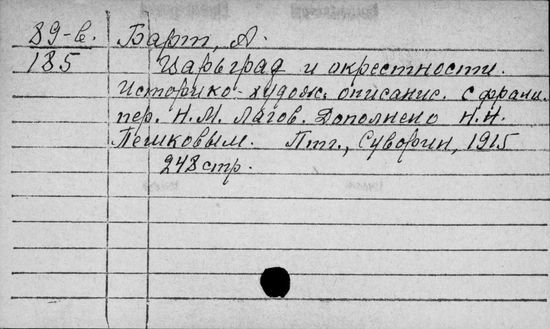 89-в. Барт, А.
185 Царьград и окрестности.
Историко-худож. описание. С франц.
пер. Н.М. Лагов. Дополнено Н.Н.
Пешковым. Птг., Суворин, 1915
248 стр.